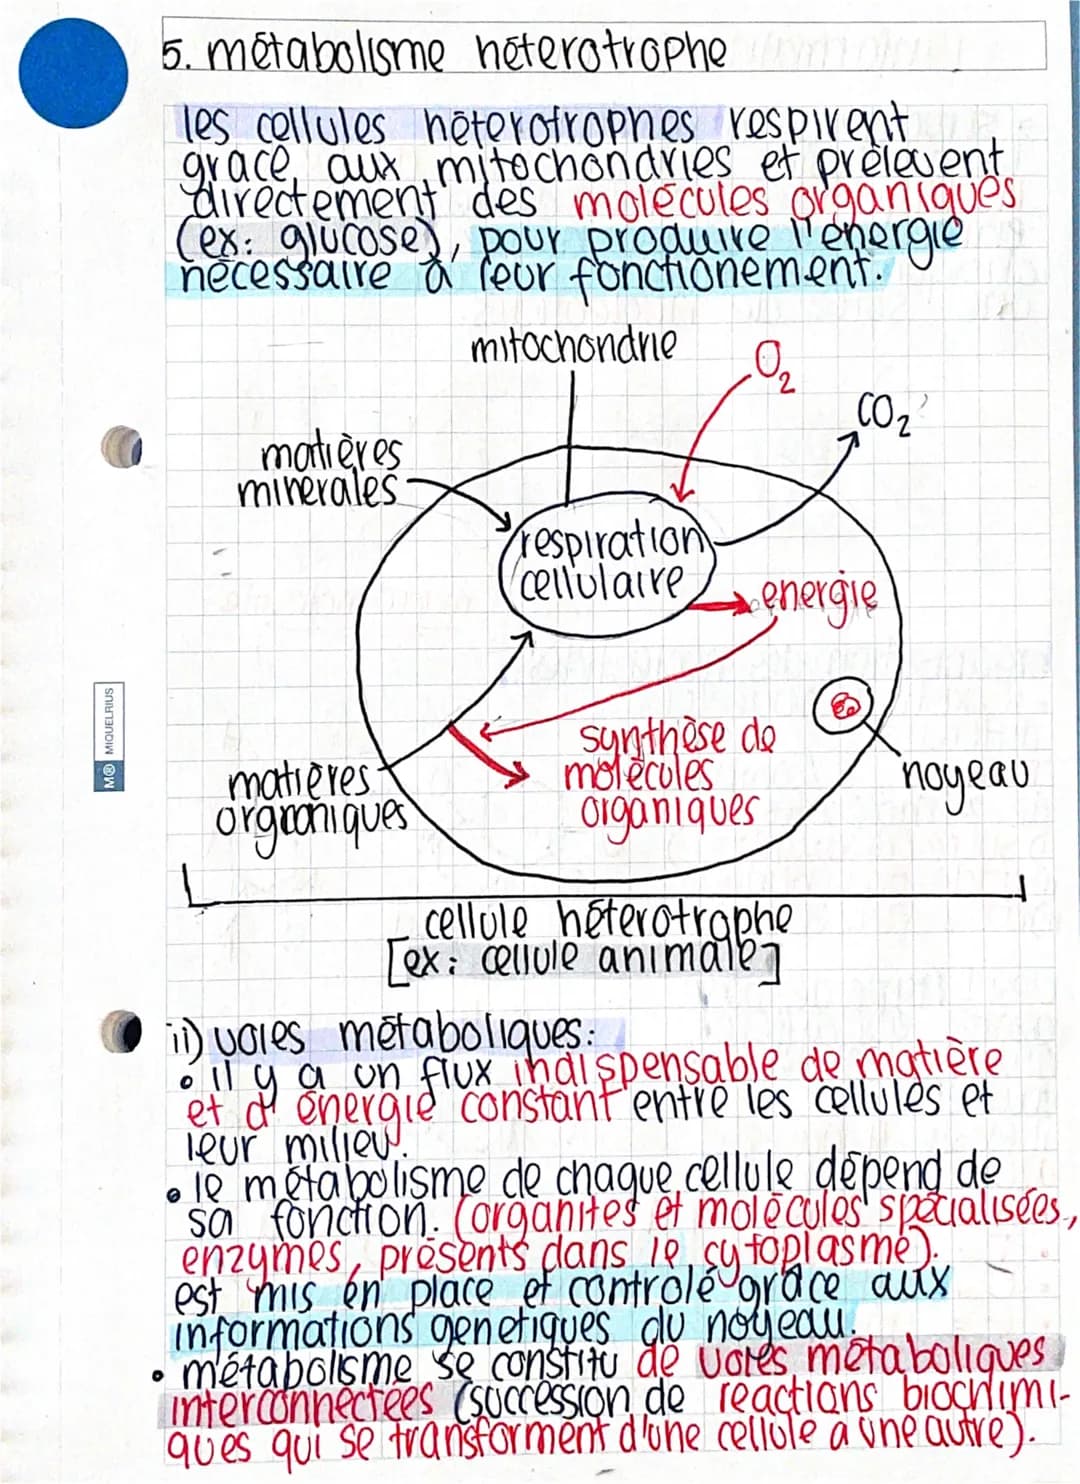 5. métabolisme hétérotrophe
les cellules hétérotrophes respirent
grace aux mitochondries et prélèvent
directement des molécules organiques
(ex: glucose), pour produire l'énergie
nécessaire à leur fonctionement.
mitochondrie
O2
CO2
matières
minerales
respiration
cellulaire
energie
synthèse de
molécules
organiques
matières
organiques
noyeau
cellule hétérotrophe
[ex: cellule animale]
M® MIQUELRIUS
ii) voies métaboliques:
• il y a un flux indispensable de matière
et d'énergie constant entre les cellules et
leur milieu.
• le métabolisme de chaque cellule dépend de
sa fonction. (organites et molécules spécialisées,
enzymes, présents dans le cytoplasme).
est mis en place et controlé grâce aux
informations genetiques du noyeau.
• métabolisme se constitu de voies métaboliques
interconnectées (succession de reactions biochimi-
ques qui se transforment d'une cellule a une autre).